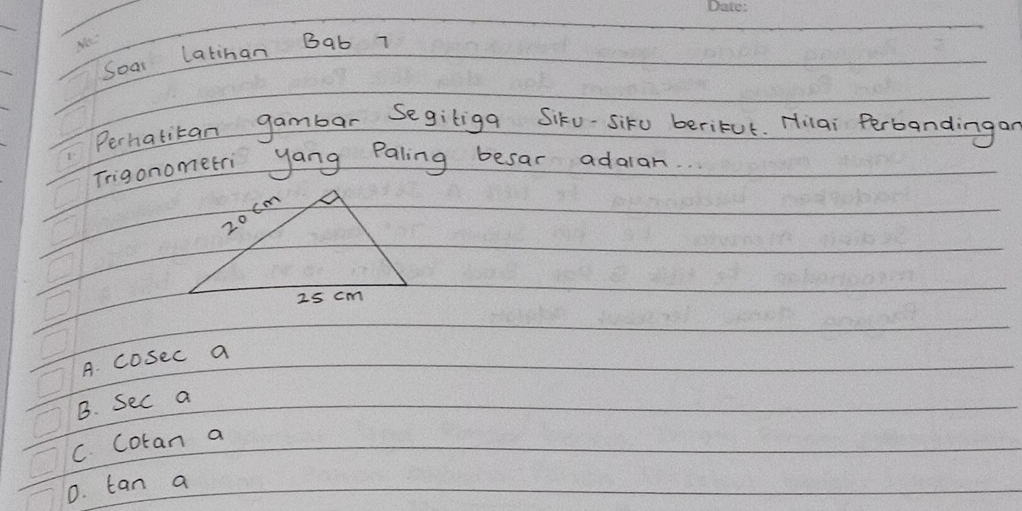 Date:
No:
Soal latihan Bab 7
1. Perhatikan gambar Segitiga Siku-Siku berikut. Nilai Perbandingan
Trigonometri yang Paling besar adalah...
20 cm
25 cm
A. cosec a
B. Sec a
C. Cotan a
D. tan a